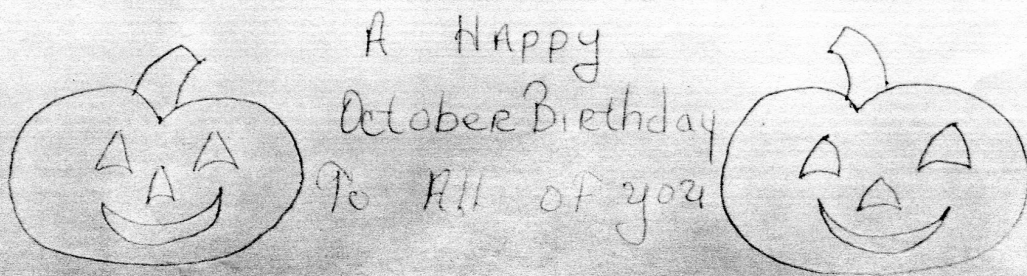 A HAppy
OctobeR BiRthday
To All oF you